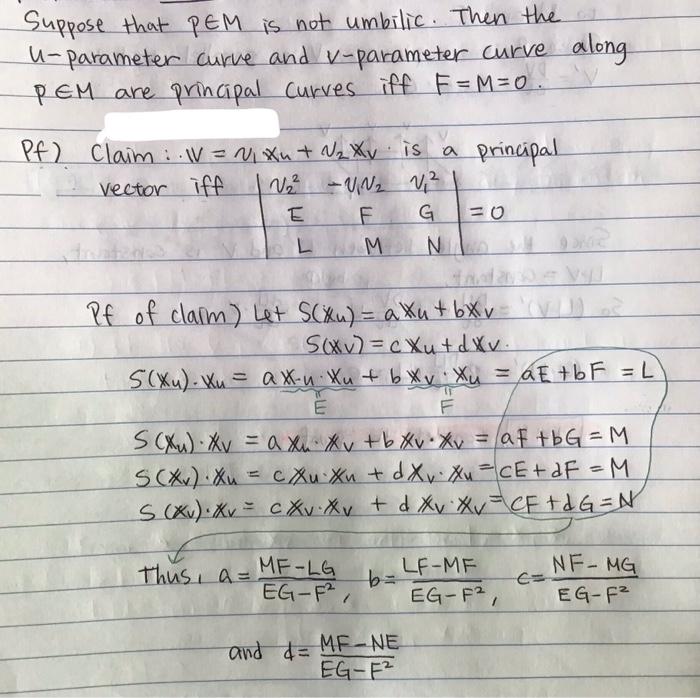 Suppose that p∈M is not umbilic. Then the
u-parameter curve and v-parameter curve along
p∈M are principal curves iff F=M=0.
Pf) Claim: 𝕧 = v₁𝕩u + v₂𝕩v is a principal
vector iff | v₂² -v₁v₂ v₁² |
| E F G | = 0
| L M N |
Pf of claim) Let S(𝕩u) = a𝕩u + b𝕩v
S(𝕩v) = c𝕩u + d𝕩v.
S(𝕩u)·𝕩u = a𝕩u·𝕩u + b𝕩v·𝕩u = aE + bF = L
E F
S(𝕩u)·𝕩v = a𝕩u·𝕩v + b𝕩v·𝕩v = aF + bG = M
S(𝕩v)·𝕩u = c𝕩u·𝕩u + d𝕩v·𝕩u = cE + dF = M
S(𝕩v)·𝕩v = c𝕩v·𝕩v + d𝕩v·𝕩v = cF + dG = N
Thus, a = (MF-LG)/(EG-F²), b = (LF-MF)/(EG-F²), c = (NF-MG)/(EG-F²)
and d = (MF-NE)/(EG-F²)